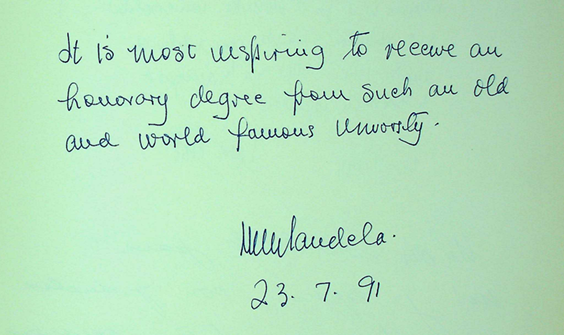 It is most inspiring to receive an
honorary degree from such an old
and world famous University.
NMandela.
23. 7. 91